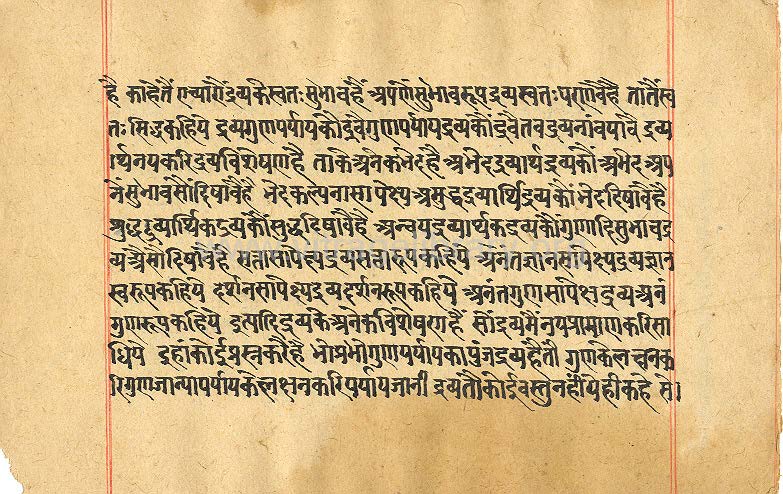 है काहेतैं गच्यारौंद्रव्यकेस्वतःसुभावहैं अपणेंसुभावरूपद्रव्यस्वतःपरणवैहै तातैंस्व
तःसिद्धकहिये द्रव्यगुणपर्यायकौंद्रवैगुणपर्यायद्रव्यकौंद्रवैतबद्रव्यनांवपावै द्रव्य
र्थनयकरिद्रव्यविशेषणहै ताकेअनेकभेदहै अभेदद्रव्यार्थद्रव्यकौंअभेदअप
नेंसुभावसौंदिषावैहै भेदकल्पनासापेक्ष्यअसुद्धद्रव्यार्थिद्रव्यकौंभेददिषावैहै
सुद्धद्रव्यार्थिकद्रव्यकौंसुद्धदिषावैहै अन्वयद्रव्यार्थकद्रव्यकौंगुणादिसुभावद्र
व्यअैसौदिषावैहै सत्तासापेक्ष्यद्रव्यसत्तारूपकहिये अनंतज्ञानसापेक्ष्यद्रव्यज्ञान
स्वरूपकहिये दर्शनसापेक्ष्यद्रव्यदर्शनरूपकहिये अनंतगुणसापेक्षद्रव्यअनंत
गुणरूपकहिये इत्यादिद्रव्यकेअनेकविशेषणहैं सोंद्रव्यमैंनयप्रामाणकरिसा
धिये इहांकोईप्रस्नकरैहै भोप्रभोगुणपर्यायकापुंजद्रव्यहैतौ गुणकेलछनक
रिगुणजान्यापर्यायकेलक्षनकरिपर्यायजानी द्रव्यतौकोईवस्तुनहींयहीकहे सा